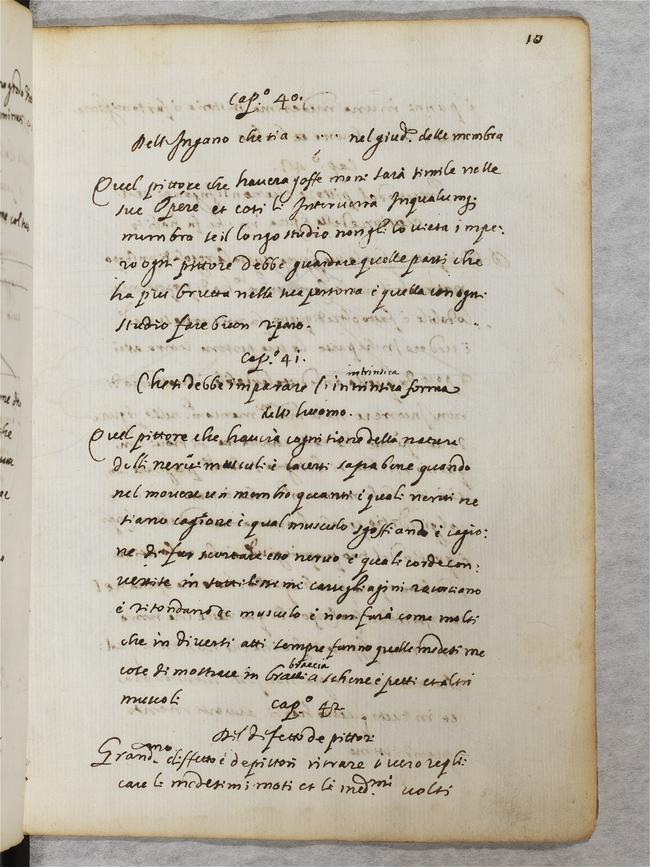 10
Cap.º 40.
Dell Ingano che si a nel giud.º delle membra
Quel pittore che havera goffe mani sarà simile nelle
sue Opere et cosi li Interverrà Inqualunq;
mumbro se il longo studio non gli lo vieta i mpe:
ro ogni pittore debbe guardare quelle parti che
ha piu brutta nella sua persona è quella con ogni
studio fare buon riparo.
Cap.º 41.
Che si debbe imparare l'intrinsica intrinsica forma
dello huomo.
Quel pittore che haverà cognitione della natura
delli nervi musculi è lacerti saprà bene quando
nel movere un membro quanti è quali nervi ne
siano cagione è qual musculo sgonfiando è cagio:
ne di far scurtare esso nervo è quali corde con:
vertite in sottilissime cartillagini
è non farà come molti
che in diversi atti sempre fanno quelle medesime
cose di mostrare in braccia schene è petti et altri
muscoli
Cap.º 42.
Del difetto de pittori
Grand.mo diffetto è de pittori ritrare i vero repli:
care li medesimi moti et li med.mi volti